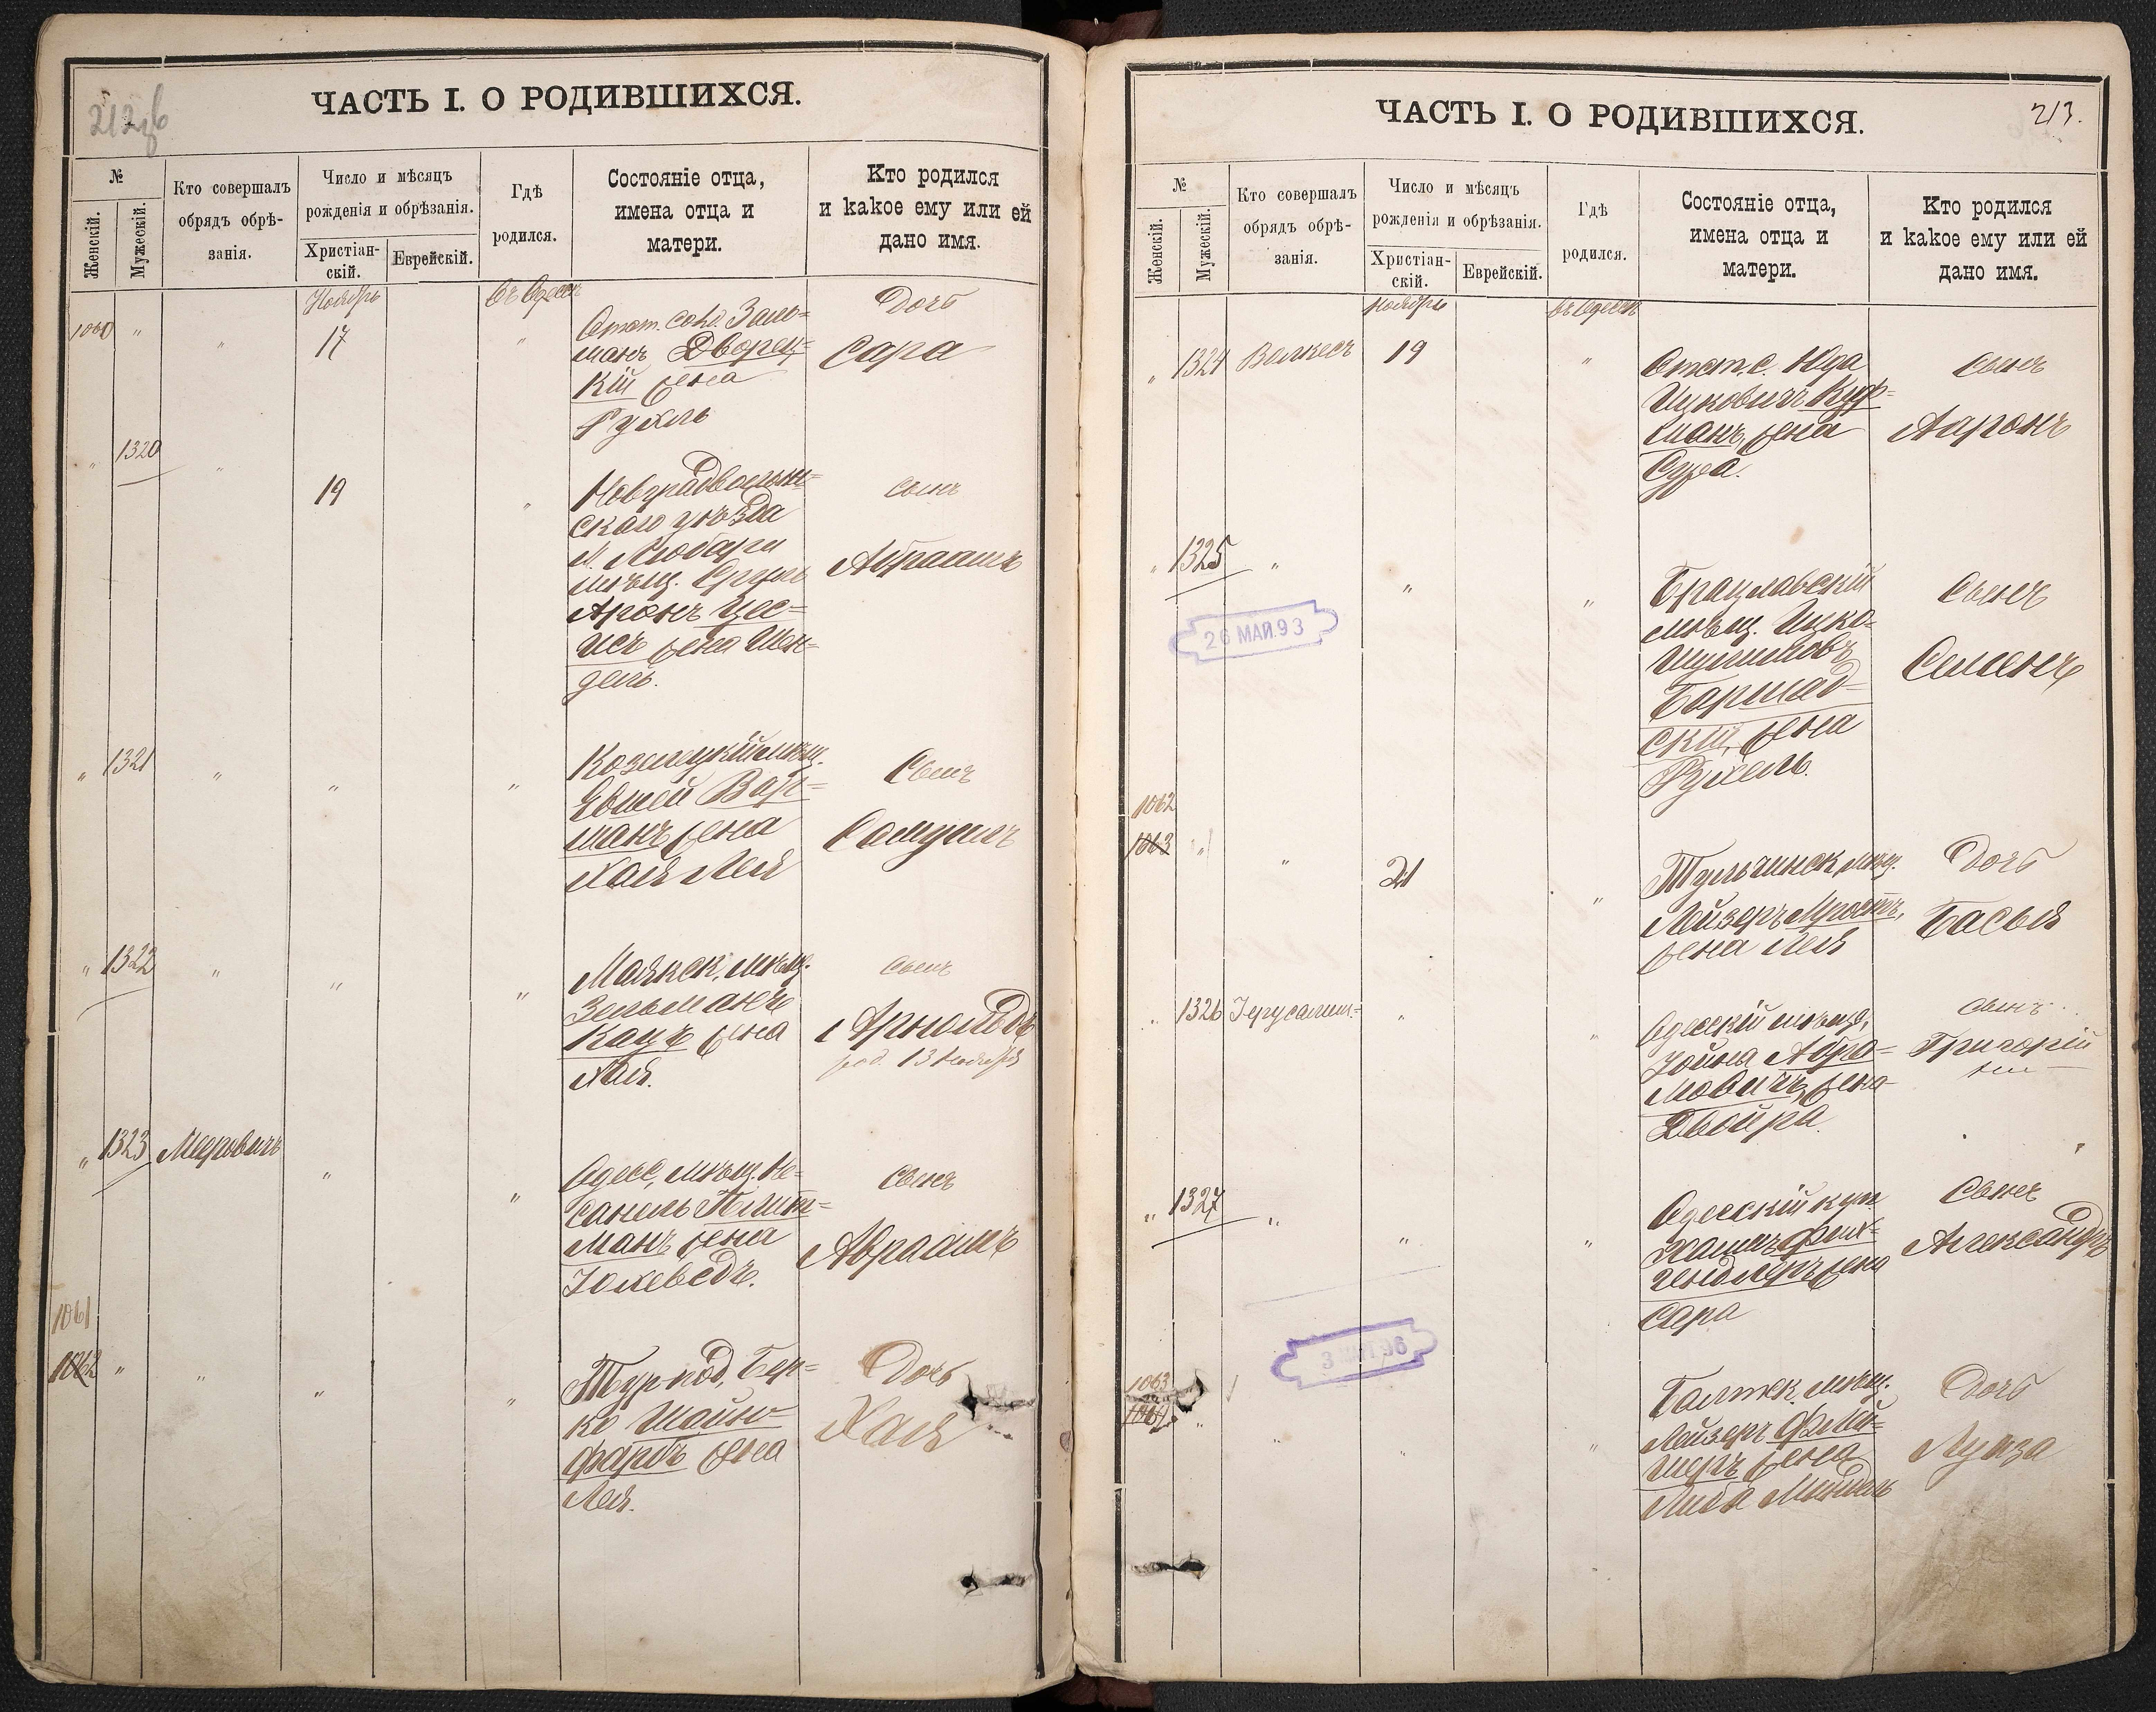 212об
ЧАСТЬ I. О РОДИВШИХСЯ.
№
Женскій.
Мужескій.
Кто совершалъ
обрядъ обрѣ-
занія.
Число и мѣсяцъ
рожденія и обрѣзанія.
Христіан-
скій.
Еврейскій.
Гдѣ
родился.
Состояніе отца,
имена отца и
матери.
Кто родился
и какое ему или ей
дано имя.
Ноябрь
въ Одессѣ
1060 " " 17 "
Отст. солд. Заль=
манъ Дворец=
кій жена
Рухль
Дочь
Сара
" 1320 " 19 "
Новградволын=
скаго уѣзда
м. Любары
мѣщ. Сруль
Аронъ
жена Шен=
дель.
сынъ
Абраамъ
" 1321 " " "
Козелецкій мѣщ.
Евшей Вар=
манъ жена
Хая Лея
Сынъ
Самуилъ
" 1322 " " "
Маякск. мѣщ.
Зельманъ
Кацъ жена
Хая.
сынъ
Арнольдъ
род. 13 Ноября
" 1323 Мееровичъ " "
Одесс. мѣщ. Не=
санель
манъ жена
Іохеведъ.
сынъ
Авраамъ
1061
1062 " " " "
Тур. под. Бер=
ко Шойн=
фарбъ жена
Лея.
Дочь
Хая
213.
ЧАСТЬ I. О РОДИВШИХСЯ.
№
Женскій.
Мужескій.
Кто совершалъ
обрядъ обрѣ-
занія.
Число и мѣсяцъ
рожденія и обрѣзанія.
Христіан-
скій.
Еврейскій.
Гдѣ
родился.
Состояніе отца,
имена отца и
матери.
Кто родился
и какое ему или ей
дано имя.
Ноябрь
въ Одессѣ
" 1324 Валкесъ 19 "
Отст. с. Юда
Ицковичъ Куф=
манъ, жена
Сура.
сынъ
Ааронъ
" 1325 " " "
26 МАЙ.93
Брацлавскій
мѣщ. Ицко-
Шулимовъ
Баршад=
скій, жена
Рухель.
Сынъ
Семенъ
1062
1063 " " 21 "
Тульчинск. мѣщ.
Лейзеръ
жена Лея
Дочь
Басья
" 1326 Іерусалим.- " "
Одесскій мѣщ.
Іойна Абра=
мовичъ, жена
Двойра
сынъ
Григорій
" 1327 " " "
Одесскій куп.
жена
Сара
Сынъ
Александръ
3
1063
1064 " " " "
Балтск. мѣщ.
Лейзеръ Флей=
шеръ жена
Либа Миндль
Дочь
Луиза